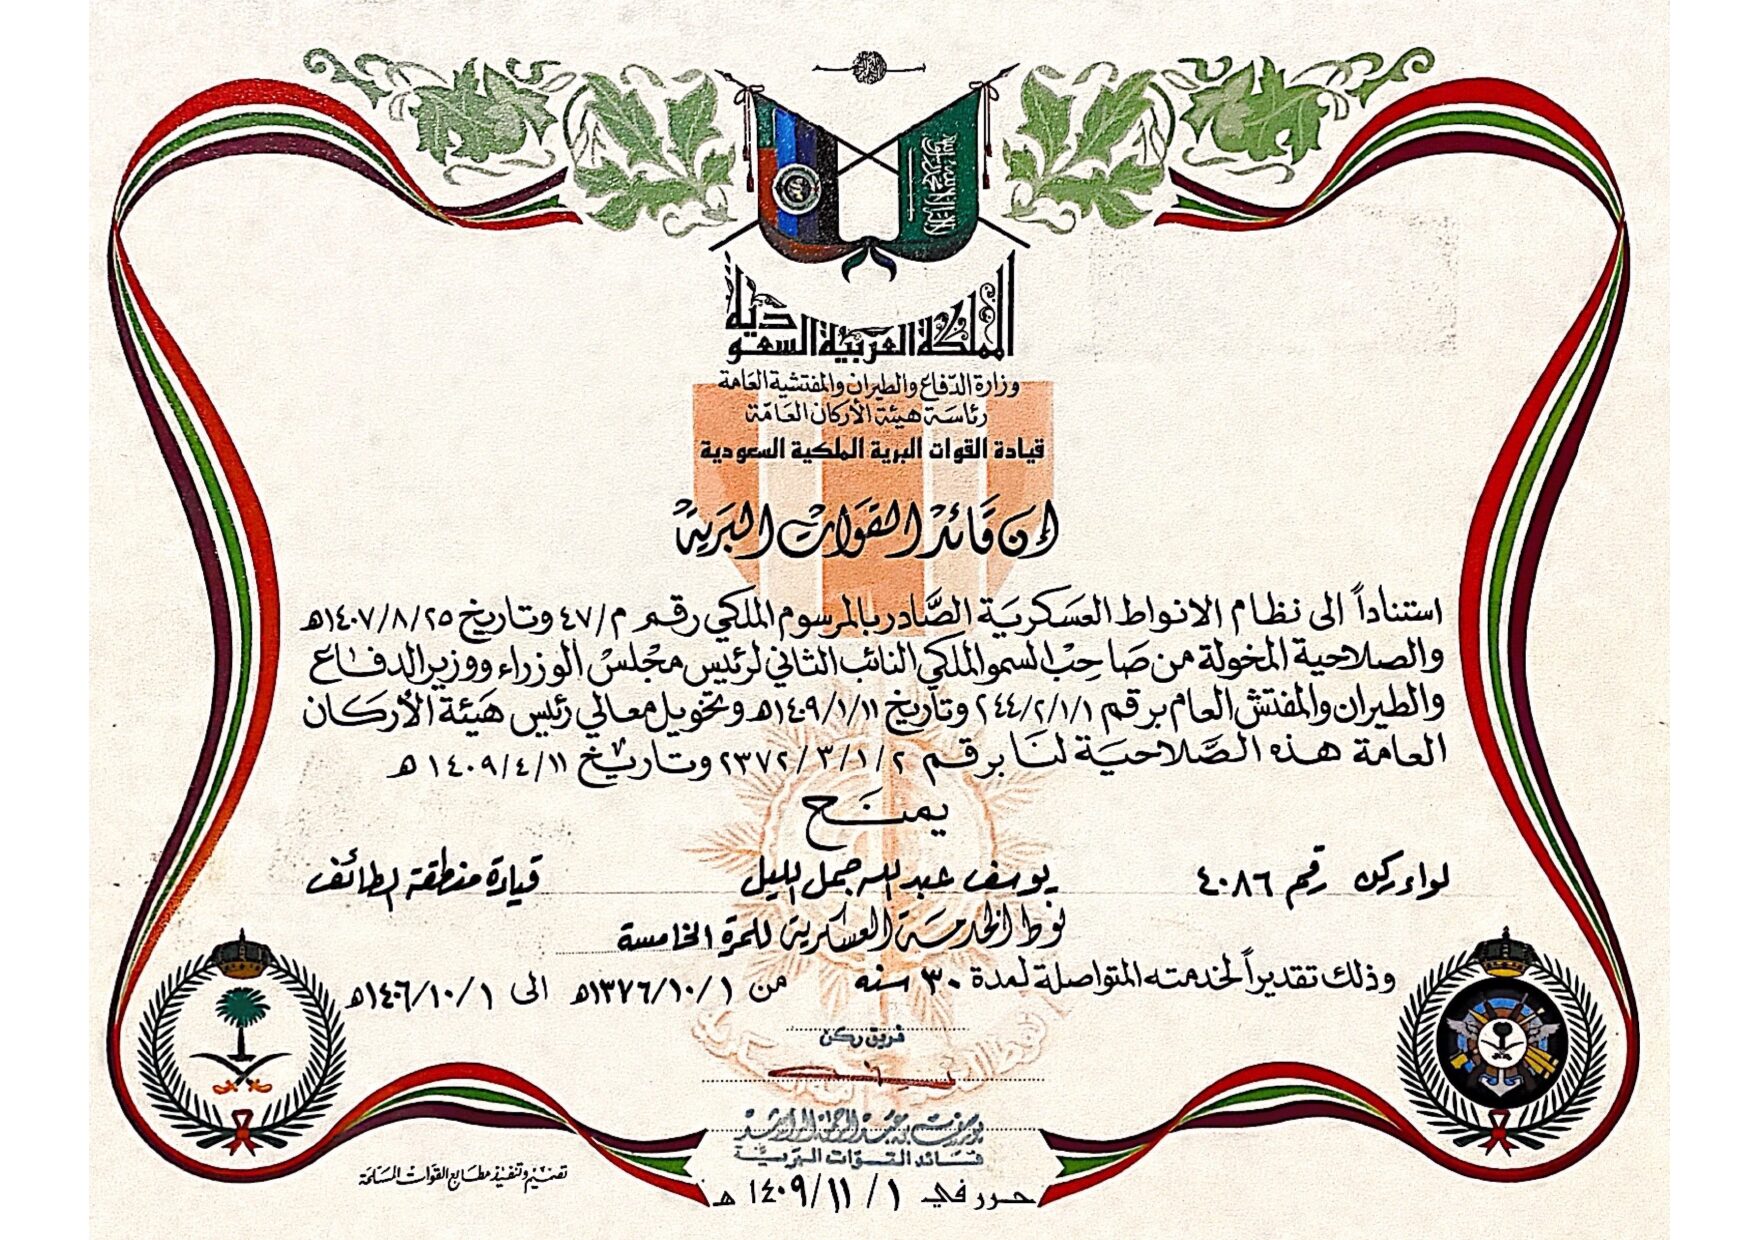 المملكة العربية السعودية
وزارة الدفاع والطيران والمفتشية العامة
رئاسة هيئة الأركان العامة
قيادة القوات البرية الملكية السعودية
إن قائد القوات البرية
استناداً الى نظام الانواط العسكرية الصادر بالمرسوم الملكي رقم م/٤٧ وتاريخ ١٤٠٧/٨/٢٥هـ
والصلاحية المخولة من صاحب السمو الملكي النائب الثاني لرئيس مجلس الوزراء ووزير الدفاع
والطيران والمفتش العام برقم ٢٤٤/٢/١/١ وتاريخ ١٤٠٩/١/١١هـ وتخويل معالي رئيس هيئة الأركان
العامة هذه الصلاحية لنا برقم ٢٣٧٢/٣/١/٢ وتاريخ ١٤٠٩/٤/١١هـ
يمنح
لواء ركن رقم ٤٠٨٦ يوسف عبدالله جمل الليل قيادة منطقة الطائف
نوط الخدمة العسكرية للمرة الخامسة
وذلك تقديراً لخدمته المتواصلة لمدة ٣٠ سنه من ١٣٧٦/١٠/١هـ الى ١٤٠٦/١٠/١هـ
فريق ركن
يوسف بن عبدالرحمن الراشد
قائد القوات البرية
حرر في ١٤٠٩/١١/١هـ
تصميم وتنفيذ مطابع القوات المسلحة